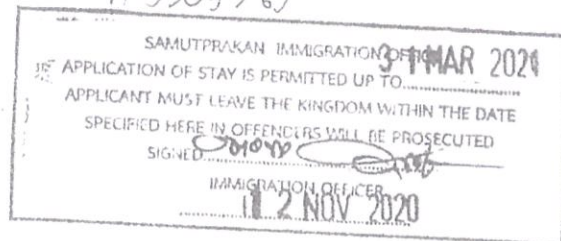 SAMUTPRAKAN IMMIGRATION OFFICE
31 MAR 2021
APPLICATION OF STAY IS PERMITTED UP TO....................
APPLICANT MUST LEAVE THE KINGDOM WITHIN THE DATE
SPECIFIED HERE IN OFFENDERS WILL BE PROSECUTED
SIGNED
IMMIGRATION OFFICER
12 NOV 2020